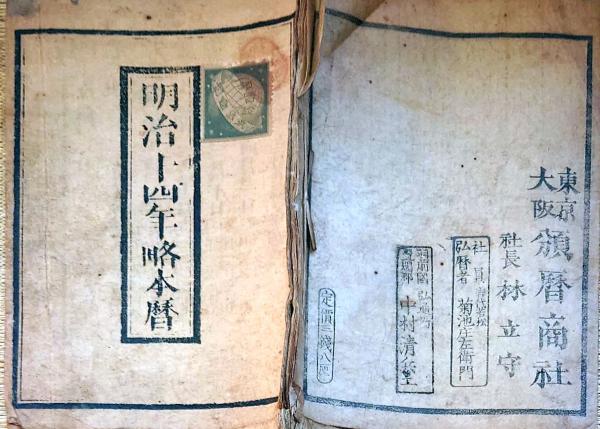 明治十四年略本暦
東京
大阪
頒暦商社
社長 林立守
社員
弘暦者 菊池庄左衛門
中村清兵工
定價三錢八厘